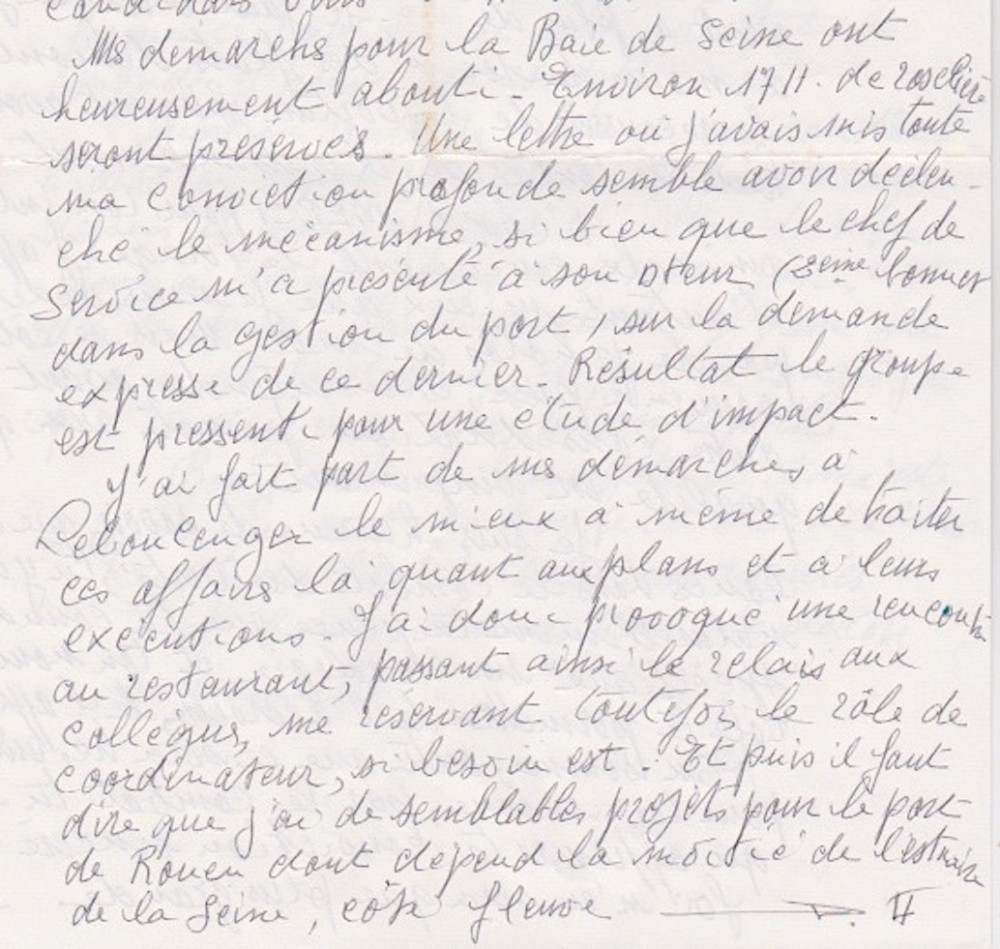 Mes demarches pour la Baie de Seine ont
heureusement abouti - Environ 17 H. de roselière
seront préservés. Une lettre où j'avais mis toute
ma conviction profonde semble avoir déclen-
ché le mécanisme, si bien que le chef de
Service m'a présenté à son Dteur (2eme bonnet
dans la gestion du port) sur la demande
expresse de ce dernier - Résultat le groupe
est pressenti pour une étude d'impact.
J'ai fait part de mes démarches à
le mieux à même de traiter
ces affaires là quant aux plans et à leurs
exécutions. J'ai donc provoqué une rencontre
au restaurant, passant ainsi le relais aux
collègues, me réservant toutefois le rôle de
coordinateur, si besoin est. Et puis il faut
dire que j'ai de semblables projets pour le port
de Rouen dont dépend la moitié de l'estuaire
de la Seine, côté fleuve II